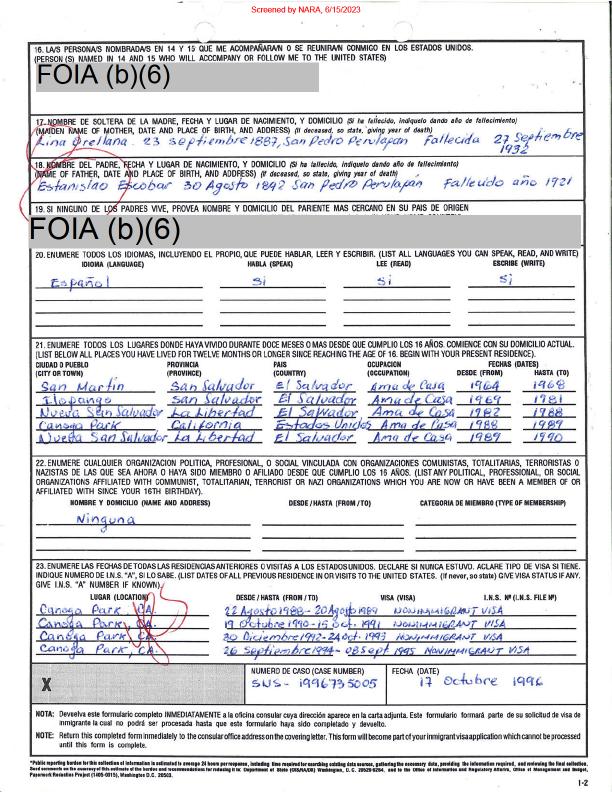 Screened by NARA, 6/15/2023
16. LA/S PERSONA/S NOMBRADA/S EN 14 Y 15 QUE ME ACOMPAÑARA/N O SE REUNIRA/N CONMIGO EN LOS ESTADOS UNIDOS.
(PERSON(S) NAMED IN 14 AND 15 WHO WILL ACCOMPANY OR FOLLOW ME TO THE UNITED STATES)
FOIA (b)(6)
17. NOMBRE DE SOLTERA DE LA MADRE, FECHA Y LUGAR DE NACIMIENTO, Y DOMICILIO (Si ha fallecido, indíquelo dando año de fallecimiento)
(MAIDEN NAME OF MOTHER, DATE AND PLACE OF BIRTH, AND ADDRESS) (If deceased, so state, giving year of death)
Lina Orellana. 23 septiembre 1887, San Pedro Perulapan Fallecida 27 Septiembre
1932
18. NOMBRE DEL PADRE, FECHA Y LUGAR DE NACIMIENTO, Y DOMICILIO (Si ha fallecido, indíquelo dando año de fallecimiento)
(NAME OF FATHER, DATE AND PLACE OF BIRTH, AND ADDRESS) (If deceased, so state, giving year of death)
Estanislao Escobar 30 Agosto 1892 San Pedro Perulapán Fallecido año 1921
19. SI NINGUNO DE LOS PADRES VIVE, PROVEA NOMBRE Y DOMICILIO DEL PARIENTE MAS CERCANO EN SU PAIS DE ORIGEN
FOIA (b)(6)
20. ENUMERE TODOS LOS IDIOMAS, INCLUYENDO EL PROPIO, QUE PUEDE HABLAR, LEER Y ESCRIBIR. (LIST ALL LANGUAGES YOU CAN SPEAK, READ, AND WRITE)
IDIOMA (LANGUAGE) HABLA (SPEAK) LEE (READ) ESCRIBE (WRITE)
Español Si Si Si
21. ENUMERE TODOS LOS LUGARES DONDE HAYA VIVIDO DURANTE DOCE MESES O MAS DESDE QUE CUMPLIO LOS 16 AÑOS. COMIENCE CON SU DOMICILIO ACTUAL.
(LIST BELOW ALL PLACES YOU HAVE LIVED FOR TWELVE MONTHS OR LONGER SINCE REACHING THE AGE OF 16. BEGIN WITH YOUR PRESENT RESIDENCE).
CIUDAD O PUEBLO PROVINCIA PAIS OCUPACION FECHAS (DATES)
(CITY OR TOWN) (PROVINCE) (COUNTRY) (OCCUPATION) DESDE (FROM) HASTA (TO)
San Martín San Salvador El Salvador Ama de Casa 1964 1968
Ilopango San Salvador El Salvador Ama de Casa 1969 1981
Nueva San Salvador La Libertad El Salvador Ama de Casa 1982 1988
Canoga Park California Estados Unidos Ama de Casa 1988 1989
Nueva San Salvador La Libertad El Salvador Ama de Casa 1989 1990
22. ENUMERE CUALQUIER ORGANIZACION POLITICA, PROFESIONAL, O SOCIAL VINCULADA CON ORGANIZACIONES COMUNISTAS, TOTALITARIAS, TERRORISTAS O
NAZISTAS DE LAS QUE SEA AHORA O HAYA SIDO MIEMBRO O AFILIADO DESDE QUE CUMPLIO LOS 16 AÑOS. (LIST ANY POLITICAL, PROFESSIONAL, OR SOCIAL
ORGANIZATIONS AFFILIATED WITH COMMUNIST, TOTALITARIAN, TERRORIST OR NAZI ORGANIZATIONS WHICH YOU ARE NOW OR HAVE BEEN A MEMBER OF OR
AFFILIATED WITH SINCE YOUR 16TH BIRTHDAY).
NOMBRE Y DOMICILIO (NAME AND ADDRESS) DESDE/HASTA (FROM/TO) CATEGORIA DE MIEMBRO (TYPE OF MEMBERSHIP)
Ninguna
23. ENUMERE LAS FECHAS DE TODAS LAS RESIDENCIAS ANTERIORES O VISITAS A LOS ESTADOS UNIDOS. DECLARE SI NUNCA ESTUVO. ACLARE TIPO DE VISA SI TIENE.
INDIQUE NUMERO DE I.N.S. "A", SI LO SABE. (LIST DATES OF ALL PREVIOUS RESIDENCE IN OR VISITS TO THE UNITED STATES. (If never, so state) GIVE VISA STATUS IF ANY.
GIVE I.N.S. "A" NUMBER IF KNOWN).
LUGAR (LOCATION) DESDE/HASTA (FROM/TO) VISA (VISA) I.N.S. Nº (I.N.S. FILE Nº)
Canoga Park, CA. 22 Agosto 1988-20 Agosto 1989 NONIMMIGRANT VISA
Canoga Park, CA. 19 Octubre 1990-15 oct. 1991 NONIMMIGRANT VISA
Canoga Park, CA. 30 Diciembre 1992-24 oct. 1993 NONIMMIGRANT VISA
Canoga Park, CA. 26 Septiembre 1994-08 Sept 1995 NONIMMIGRANT VISA
X
NUMERO DE CASO (CASE NUMBER) FECHA (DATE)
SNS-1996735005 17 Octubre 1996
NOTA: Devuelva este formulario completo INMEDIATAMENTE a la oficina consular cuya dirección aparece en la carta adjunta. Este formulario formará parte de su solicitud de visa de
inmigrante la cual no podrá ser procesada hasta que este formulario haya sido completado y devuelto.
NOTE: Return this completed form immediately to the consular office address on the covering letter. This form will become part of your immigrant visa application which cannot be processed
until this form is complete.
*Public reporting burden for this collection of information is estimated to average 24 hours per response, including time required for searching existing data sources, gathering the necessary data, providing the information required, and reviewing the final collection.
Send comments on the accuracy of this estimate of the burden and recommendations for reducing it to: Department of State (OIS/RA/DR) Washington, D.C. 20520-0264, and to the Office of Information and Regulatory Affairs, Office of Management and Budget,
Paperwork Reduction Project (1405-0015), Washington D.C. 20503.
1-2